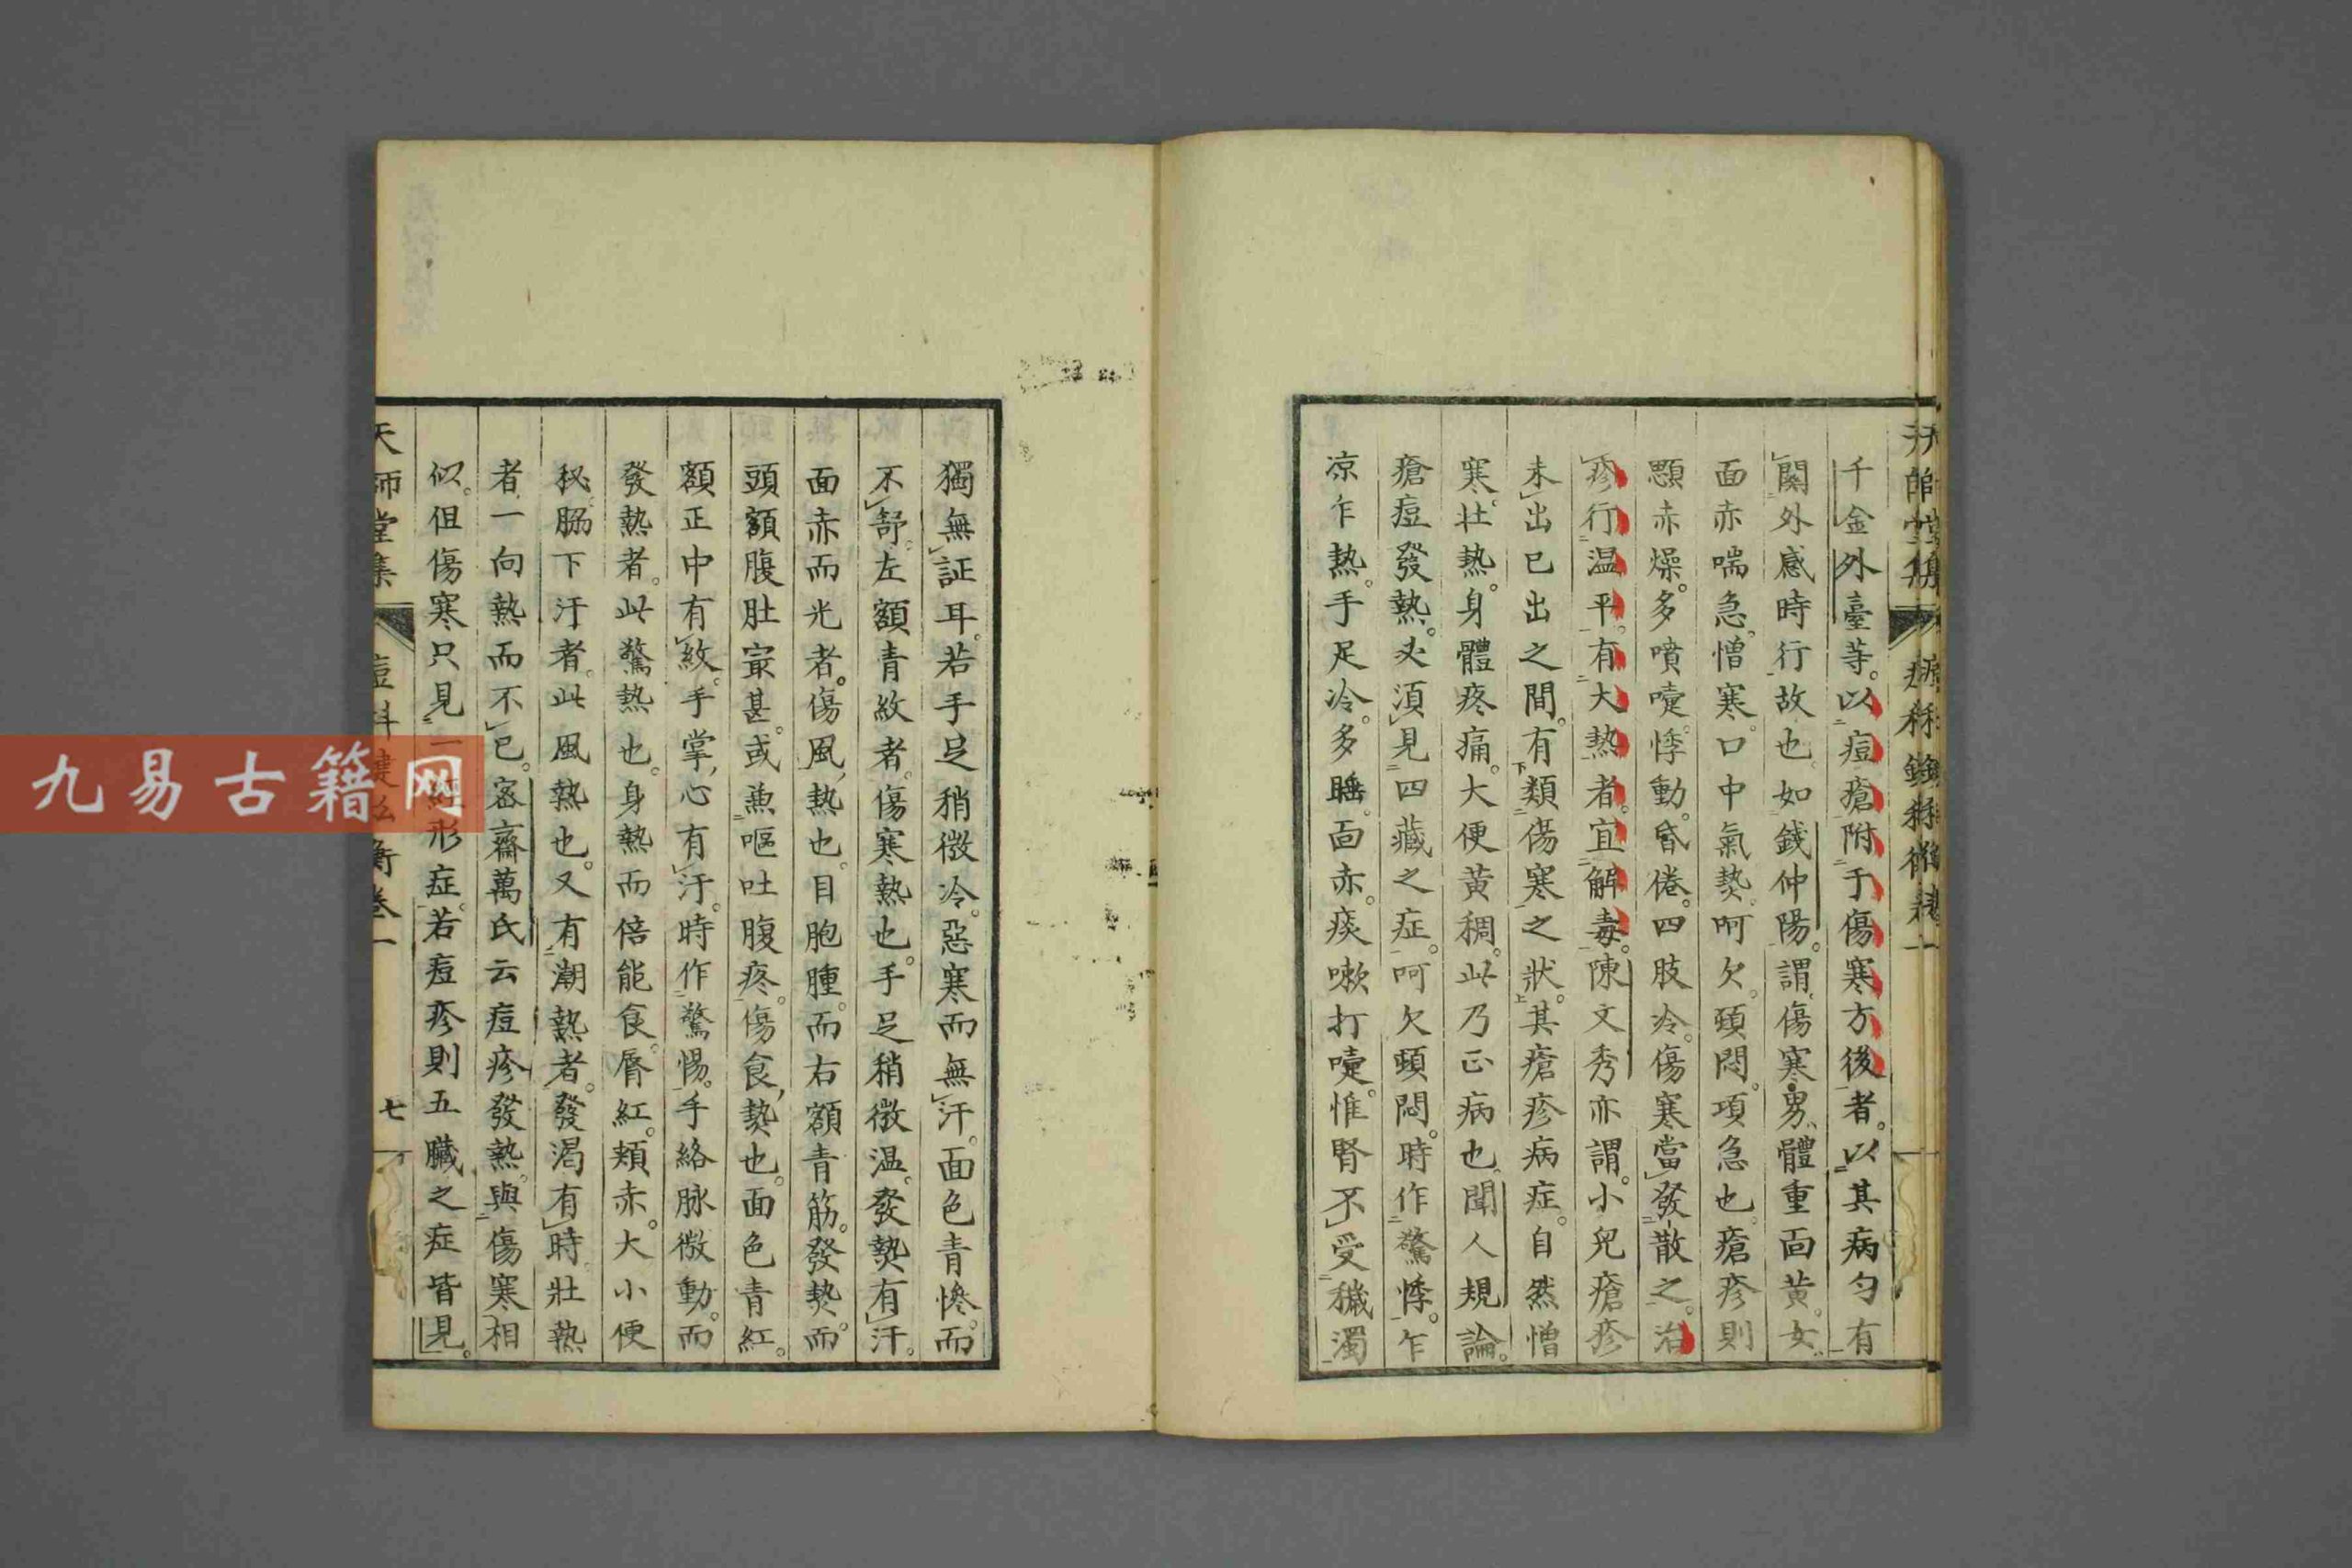 千金外臺等。以痘瘡附于傷寒方後者。以其病勻有
關外感時行故也。如錢仲陽。謂傷寒男體重面黄。女
面赤喘急。憎寒。口中氣熱。呵欠。頭悶。項急也。瘡疹則
顋赤燥。多噴嚏。悸動。昏倦。四肢冷。傷寒當發散之。治
疹行温平。有大熱者。宜解毒。陳文秀亦謂。小兒瘡疹
未出已出之間。有類傷寒之狀。其瘡疹病症。自然憎
寒。壯熱。身體疼痛。大便黄稠。此乃正病也。聞人規論。
瘡痘發熱。必須見四藏之症。呵欠頭悶。時作驚悸。乍
凉乍熱。手足冷。多睡。面赤。痰嗽打嚏。惟腎不受穢濁
獨無証耳。若手足稍微冷。惡寒而無汗。面色青惨。而
不舒。左額青紋者。傷寒熱也。手足稍微温。發熱有汗。
面赤而光者。傷風熱也。目胞腫。而右額青筋。發熱。而
頭額腹肚最甚。或兼嘔吐腹疼。傷食熱也。面色青紅。
額正中有紋。手掌心有汗。時作驚惕。手絡脉微動。而
發熱者。此驚熱也。身熱而倍能食。唇紅。頬赤。大小便
秘。脇下汗者。此風熱也。又有潮熱者。發渇有時。壯熱
者。一向熱而不已。密齋萬氏云痘疹發熱。與傷寒相
似。但傷寒只見一經形症。若痘疹則五臟之症皆見。
天師堂集
痘科鍵私衡卷一
七
九易古籍网